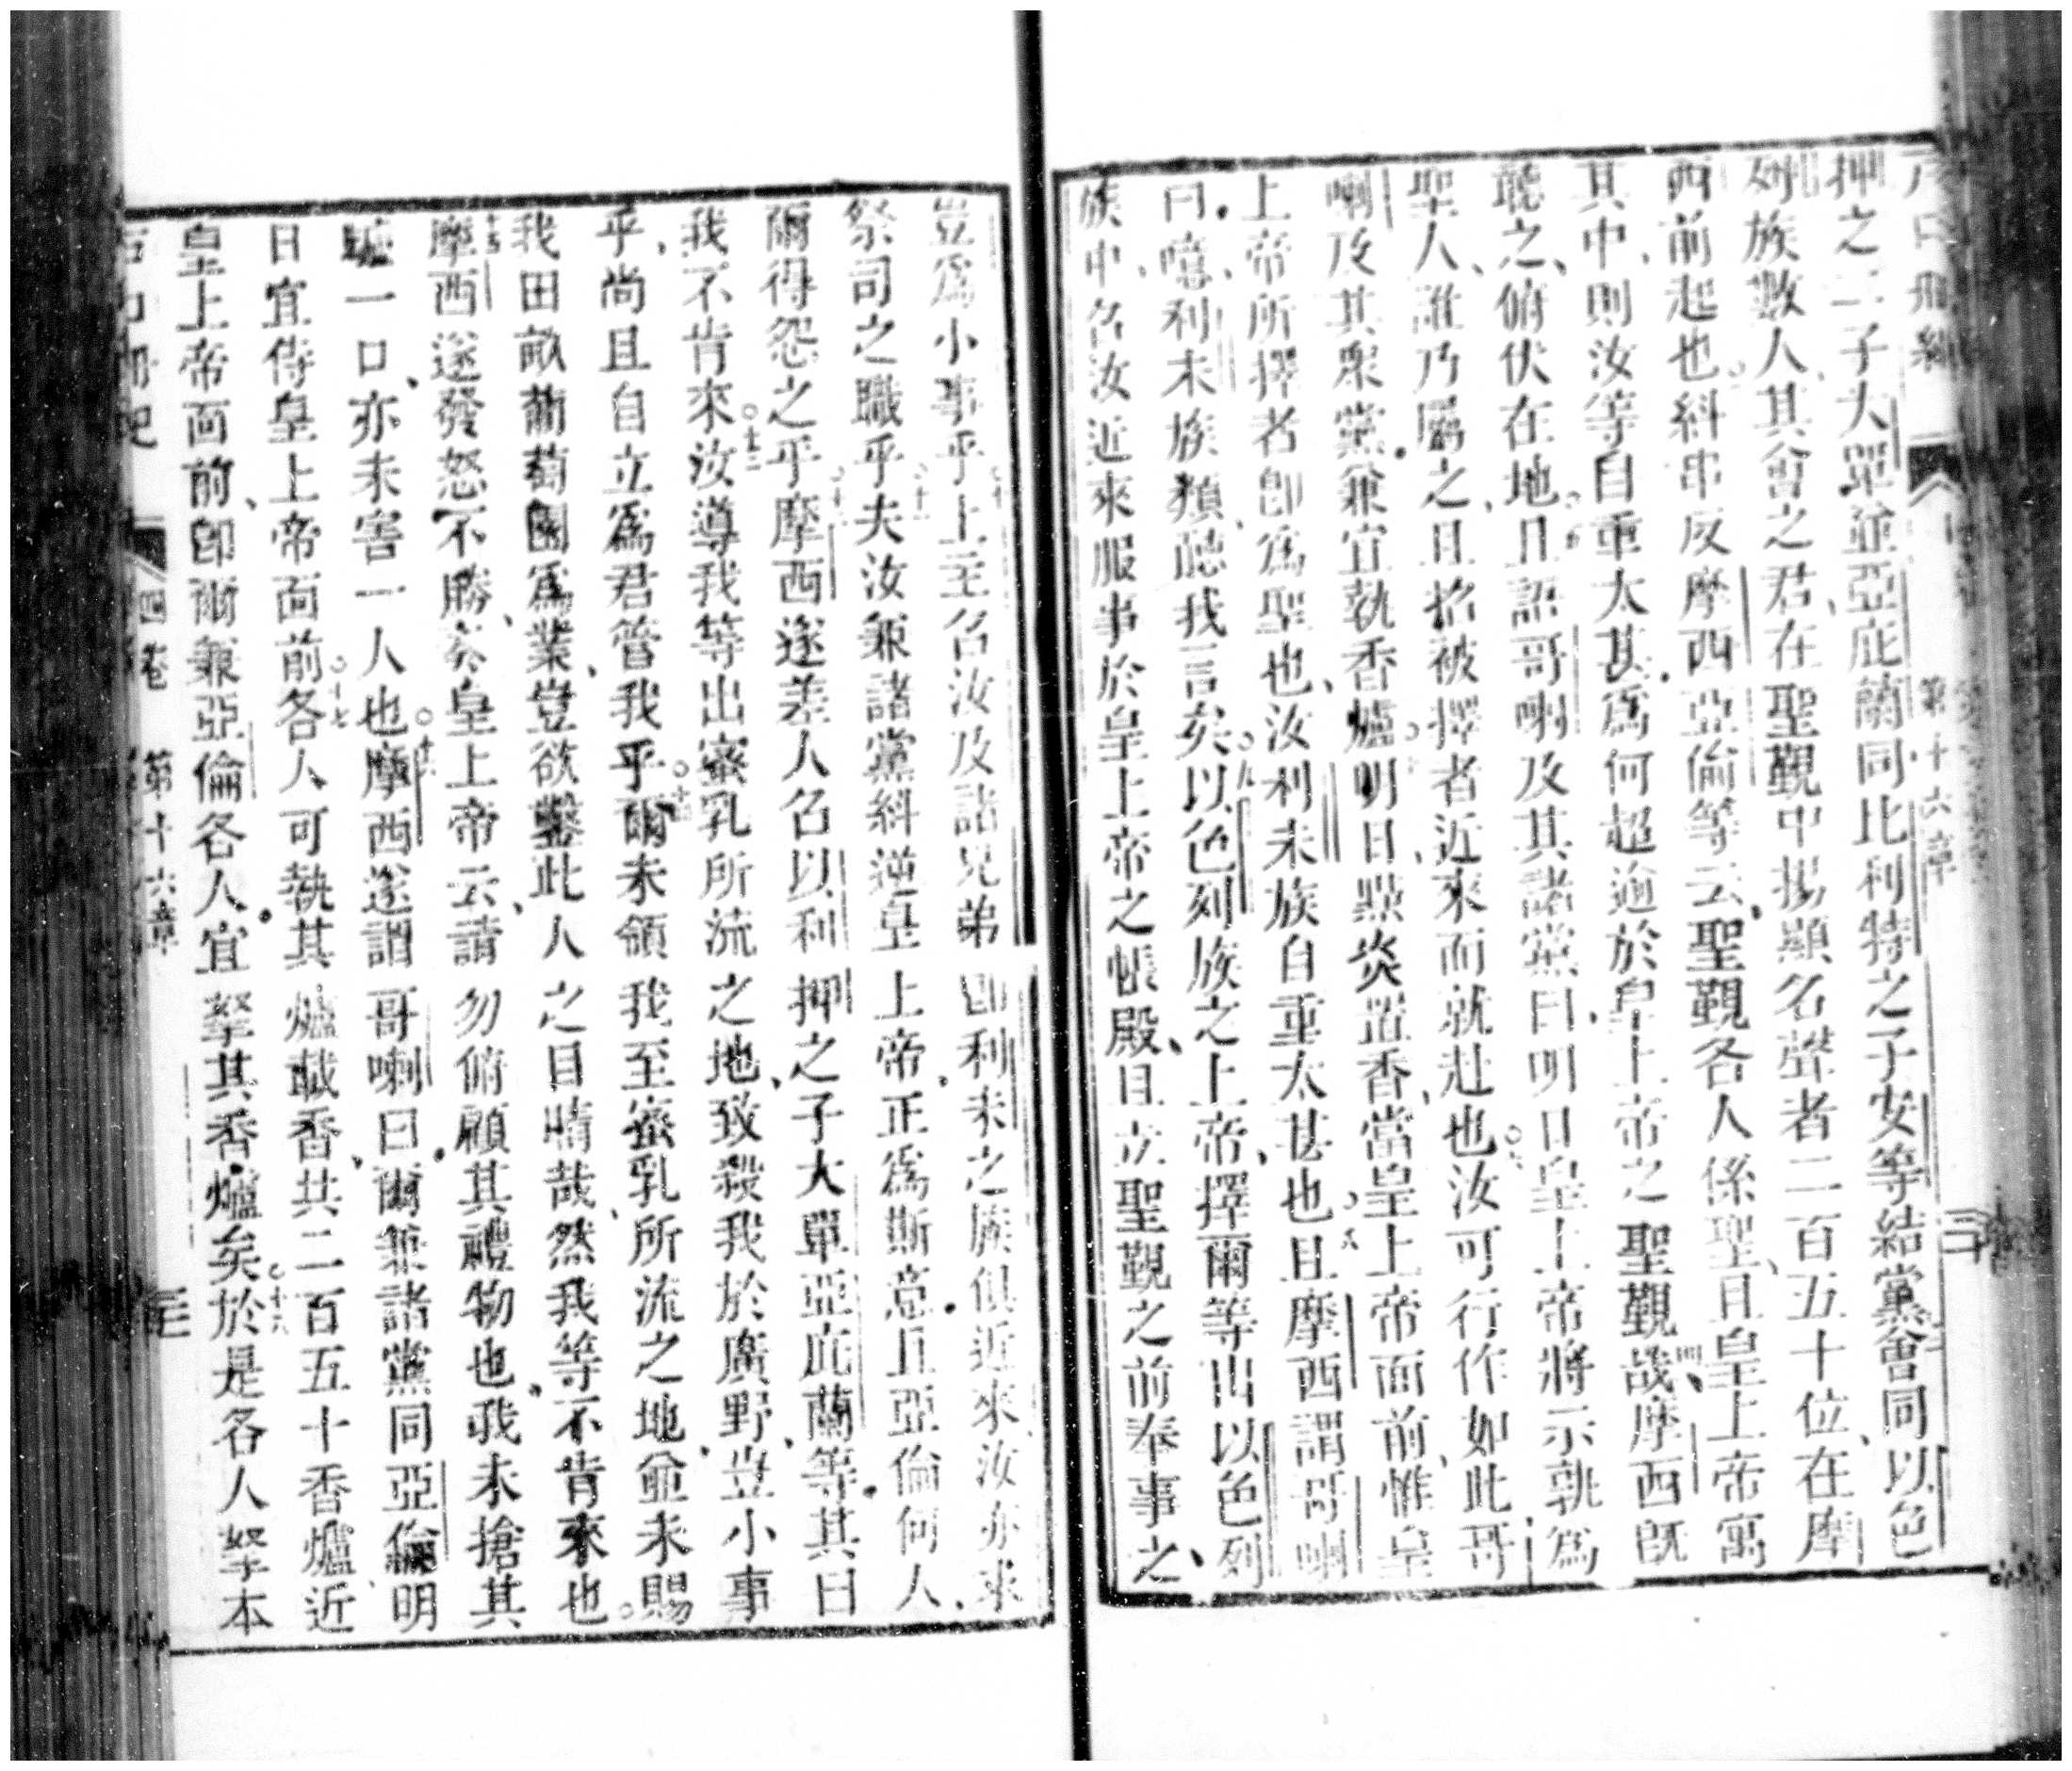 戶口冊紀 第十六章
押之二子大單並亞庇蘭同比利特之子安等結黨會同以色
列族數人其會之君在聖覲中揚顯名聲者二百五十位在摩
西前起也糾串反摩西亞倫等云聖覲各人係聖且皇上帝寓
其中則汝等自重太甚為何超逾於皇上帝之聖覲哉摩西既
聽之俯伏在地且語哥喇及其諸黨曰明日皇上帝將示孰為
聖人誰乃屬之且招被擇者近來而就赴也汝可行作如此哥
喇及其眾黨兼宜執香爐明日點炎置香當皇上帝面前惟皇
上帝所擇者即為聖也汝利未族自重太甚也且摩西謂哥喇
曰噫利未族類聽我言矣以色列族之上帝擇爾等出以色列
族中名汝近來服事於皇上帝之帳殿且立聖覲之前奉事之
豈為小事乎上主名汝及諸兄弟即利未之族俱近來汝亦求
祭司之職乎夫汝兼諸黨糾逆皇上帝正為斯意且亞倫何人
爾得怨之乎摩西遂差人名以利押之子大單亞庇蘭等其曰
我不肯來汝導我等出蜜乳所流之地致殺我於廣野豈小事
乎尚且自立為君管我乎爾未領我至蜜乳所流之地並未賜
我田畝葡萄園為業豈欲鑿此人之目睛哉然我等不肯來也
摩西遂發怒不勝奏皇上帝云請勿俯顧其禮物也我未搶其
驢一口亦未害一人也摩西遂謂哥喇曰爾兼諸黨同亞倫明
日宜侍皇上帝面前各人可執其爐載香共二百五十香爐近
皇上帝面前即爾兼亞倫各人宜拏其香爐矣於是各人拏本
四卷 第十六章